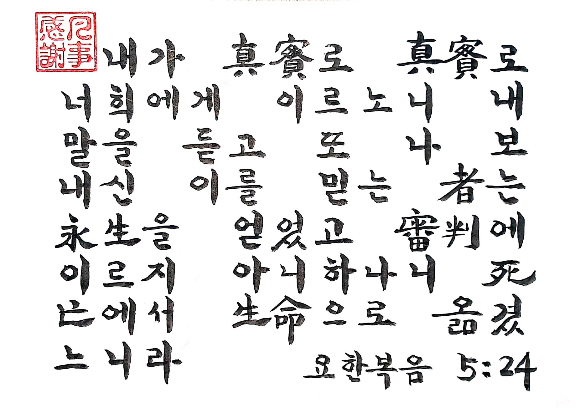 凡事感謝
내가 真實로 真實로
너희에게 이르노니 내
말을 듣고 또 나 보
내신 이를 믿는 者는
永生을 얻었고 審判에
이르지 아니하나니 死
亡에서 生命으로 옮겼
느니라 요한복음 5:24